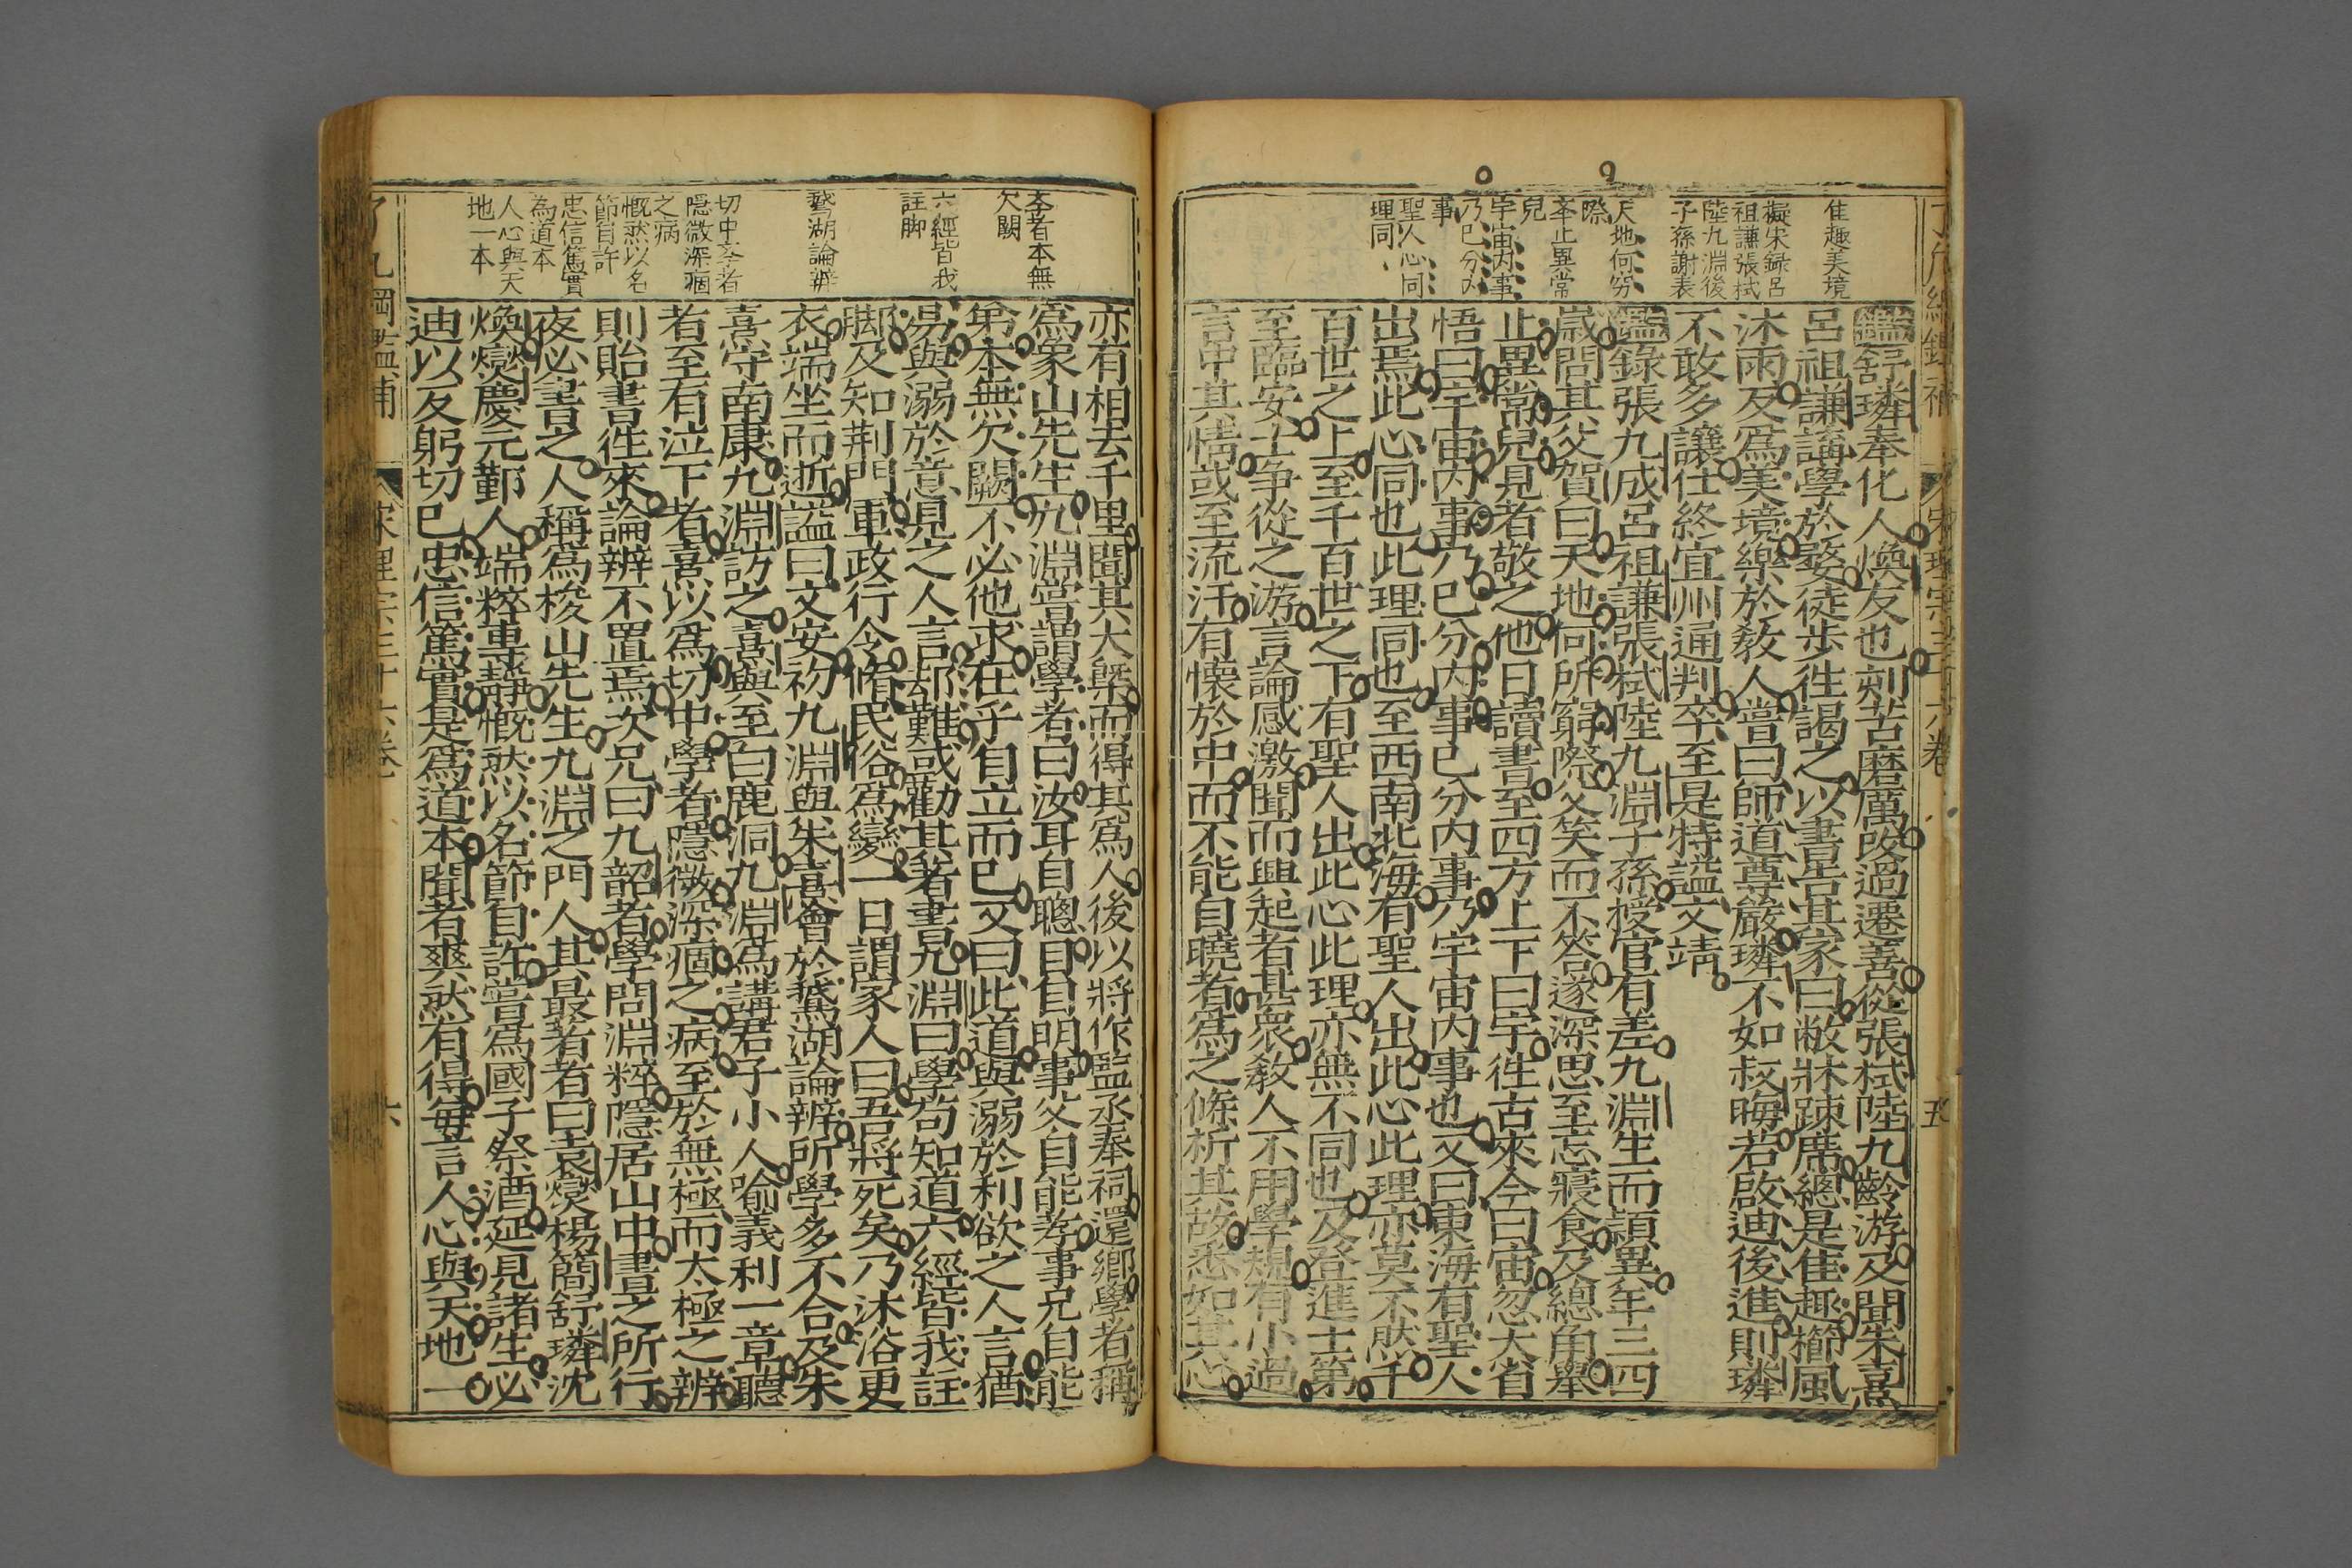 佳趣美境
擬宋録呂
祖謙張栻
陸九淵後
子孫謝表
天地何穷
際
𪯲止異常
兒
宇宙内事
乃已分内
事
聖人心同
理同
鑑舒璘奉化人煥友也刻苦磨厲改過遷善從張栻陸九齡游及聞朱熹
呂祖謙講學於婺徒步徃謁之以書告其家曰敝牀踈席總是佳趣櫛風
沐雨反爲美境樂於敎人嘗曰師道尊嚴璘不如叔晦若啟迪後進則璘
不敢多讓仕終宜州通判卒至是特謚文靖
鑑錄張九成呂祖謙張栻陸九淵子孫授官有差九淵生而頴異年三四
歲問其父賀曰天地何所窮際父笑而不答遂深思至忘寢食及總角舉
止異常兒見者敬之他日讀書至四方上下曰宇徃古來今曰宙忽大省
悟曰宇宙内事乃已分内事已分内事乃宇宙内事也又曰東海有聖人
出焉此心同也此理同也至西南北海有聖人出此心此理亦莫不然千
百世之上至千百世之下有聖人出此心此理亦無不同也及登進士第
至臨安士争從之游言論感激聞而興起者甚衆敎人不用學規有小過
言中其情或至流汗有懷於中而不能自曉者爲之條析其故悉如其心
五
𪯲者本無
欠闕
六經皆我
註脚
鵞湖論辨
切中𪯲者
隱微深痼
之病
慨然以名
節自許
忠信篤實
為道本
人心與天
地一本
亦有相去千里聞其大槩而得其爲人後以將作監丞奉祠還鄕學者稱
爲象山先生九淵嘗謂學者曰汝耳自聰目自明事父自能孝事兄自能
弟本無欠闕不必他求在乎自立而已又曰此道與溺於利欲之人言猶
易與溺於意見之人言却難或勸其著書九淵曰學苟知道六經皆我註
脚及知荆門軍政行令脩民俗爲變一日謂家人曰吾將死矣乃沐浴更
衣端坐而逝謚曰文安初九淵與朱熹會於鵞湖論辨所學多不合及朱
熹守南康九淵訪之熹與至白鹿洞九淵爲講君子小人喻義利一章聽
者至有泣下者熹以爲切中學者隱微深痼之病至於無極而太極之辨
則貽書徃來論辨不置焉次兄曰九韶者學問淵粹隱居山中晝之所行
夜必書之人稱爲梭山先生九淵之門人其最著者曰袁燮楊簡舒璘沈
煥燮慶元鄞人端粹專靜慨然以名節自許嘗爲國子祭酒延見諸生必
迪以反躬切已忠信篤實是爲道本聞者爽然有得每言人心與天地一
六